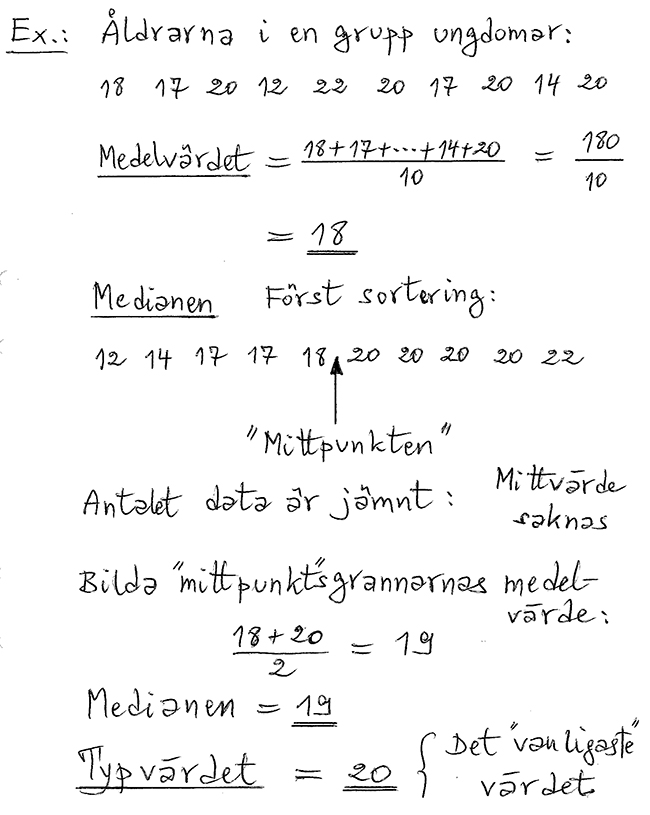 Ex.: Åldrarna i en grupp ungdomar:
18 17 20 12 22 20 17 20 14 20
Medelvärdet = (18+17+...+14+20)/10 = 180/10
= 18
Medianen Först sortering:
12 14 17 17 18 20 20 20 20 22
"Mittpunkten"
Antalet data är jämnt: Mittvärde
saknas
Bilda "mittpunkt"sgrannarnas medel-
värde:
(18+20)/2 = 19
Medianen = 19
Typvärdet = 20 { Det "vanligaste"
värdet